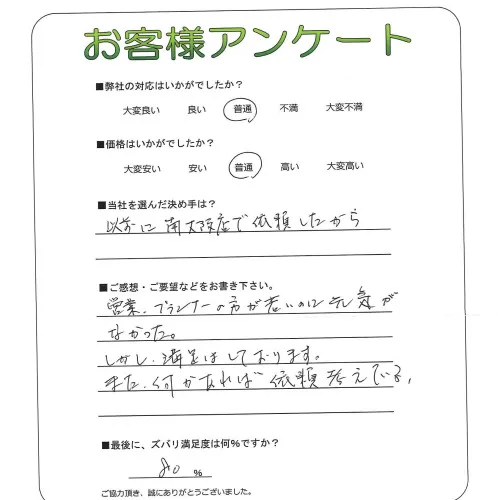 お客様アンケート
■弊社の対応はいかがでしたか？
大変良い 良い 普通 不満 大変不満
■価格はいかがでしたか？
大変安い 安い 普通 高い 大変高い
■当社を選んだ決め手は？
以前に南大阪店で依頼したから
■ご感想・ご要望などをお書き下さい。
営業、プランナーの方が若いのに元気が
なかった。
しかし、満足はしております。
また、何かあれば依頼考えている、
■最後に、ズバリ満足度は何%ですか？
80 %
ご協力頂き、誠にありがとうございました。